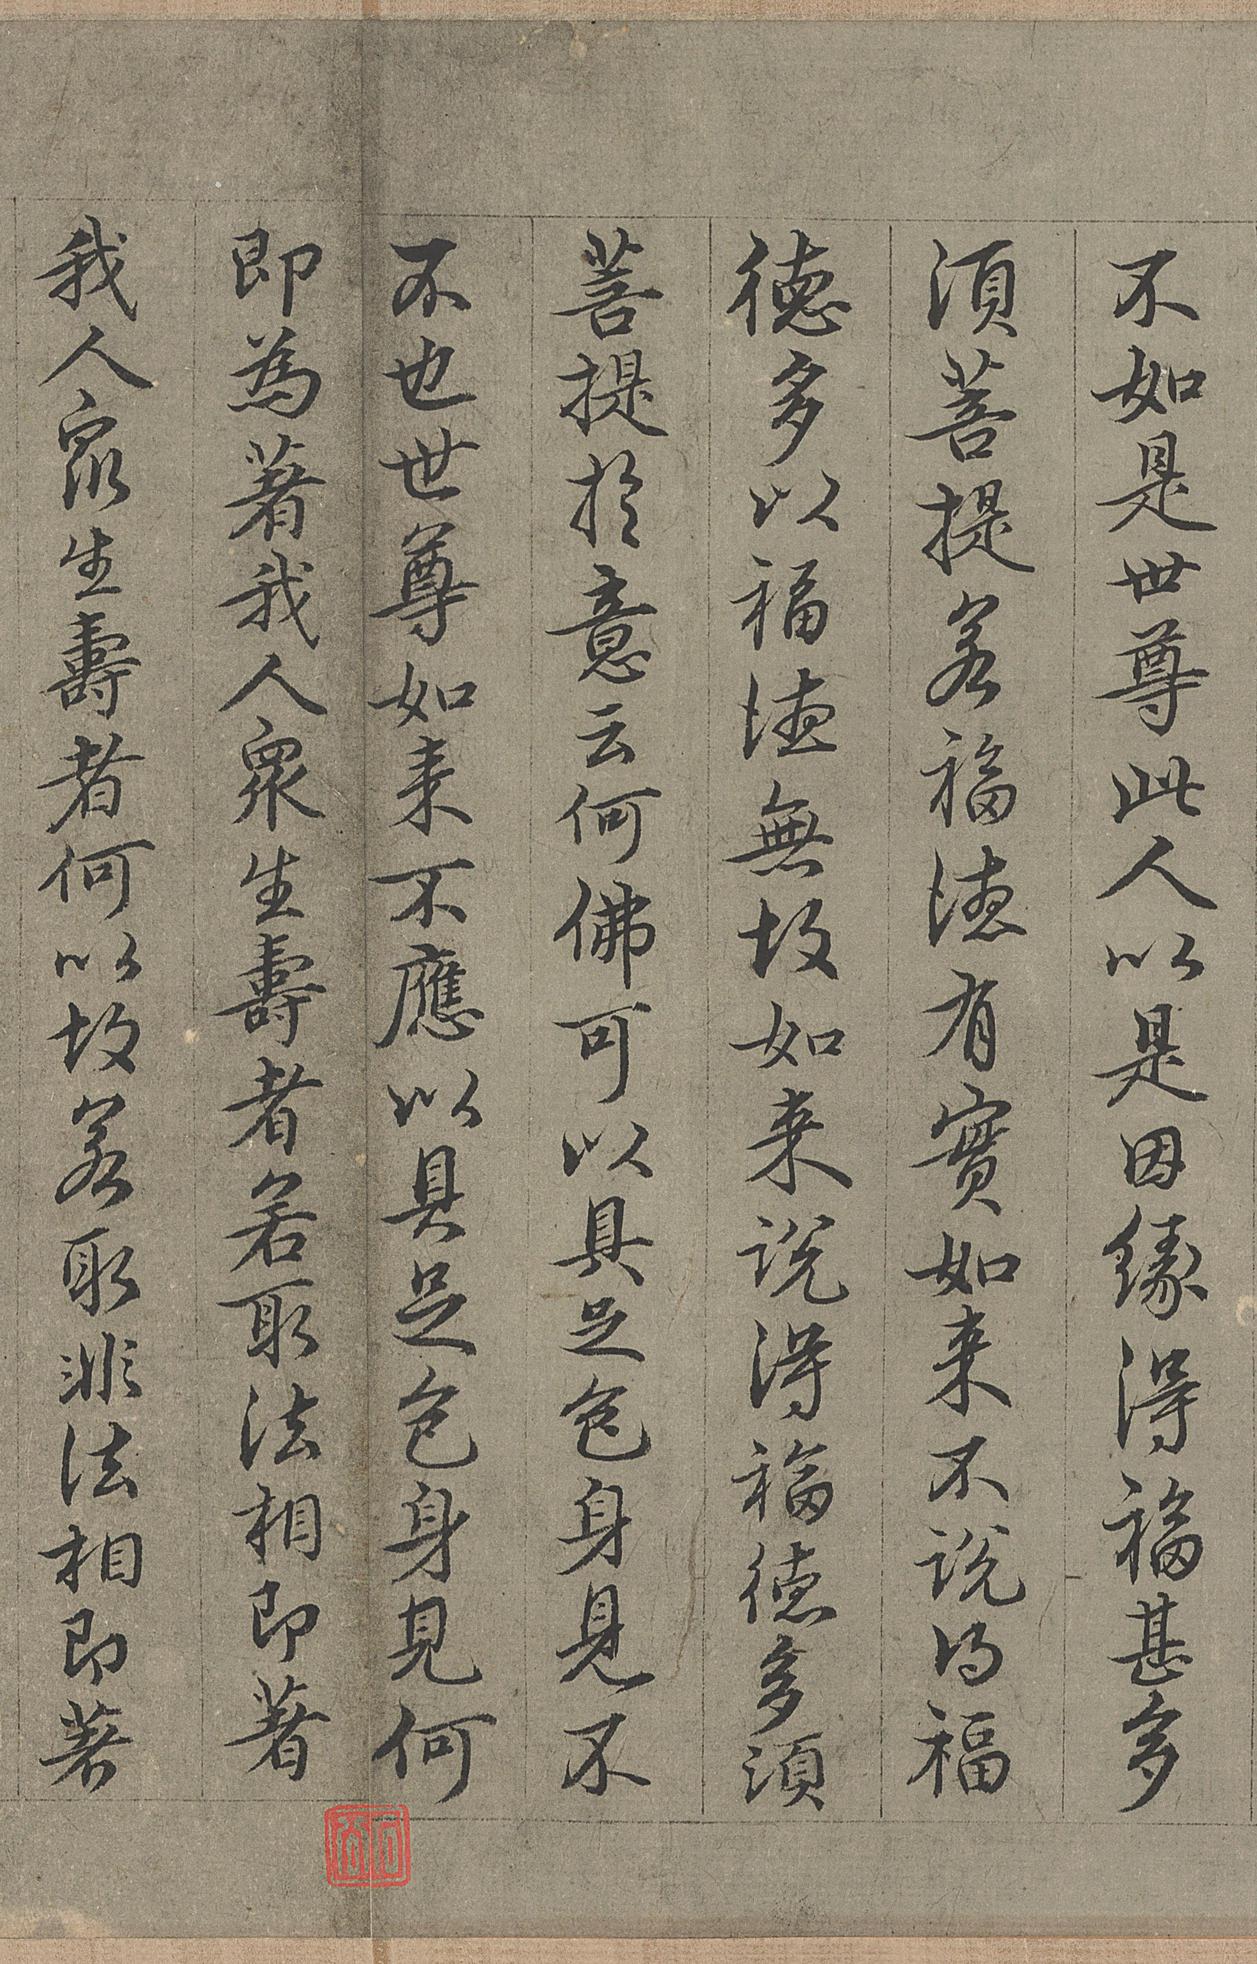 不如是世尊此人以是因緣得福甚多
須菩提若福德有實如来不說得福
德多以福德無故如来說得福德多須
菩提於意云何佛可以具足色身見不
不也世尊如来不應以具足色身見何
即為著我人衆生壽者若取法相即著
我人衆生壽者何以故若取非法相即著